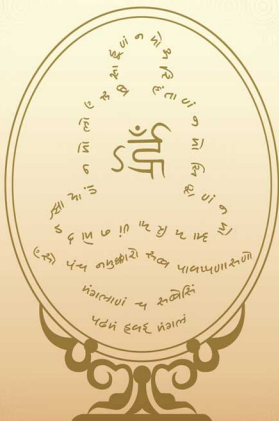 નમો અરિહંતાણં
નમો સિદ્ધાણં
નમો આયરિયાણં
નમો ઉવજ્ઝાયાણં
નમો લોએ સવ્વ સાહૂણં
એસો પંચ નમુક્કારો સવ્વ પાવપ્પણાસણો
મંગલાણં ચ સવ્વેસિં
પઢમં હવઇ મંગલં